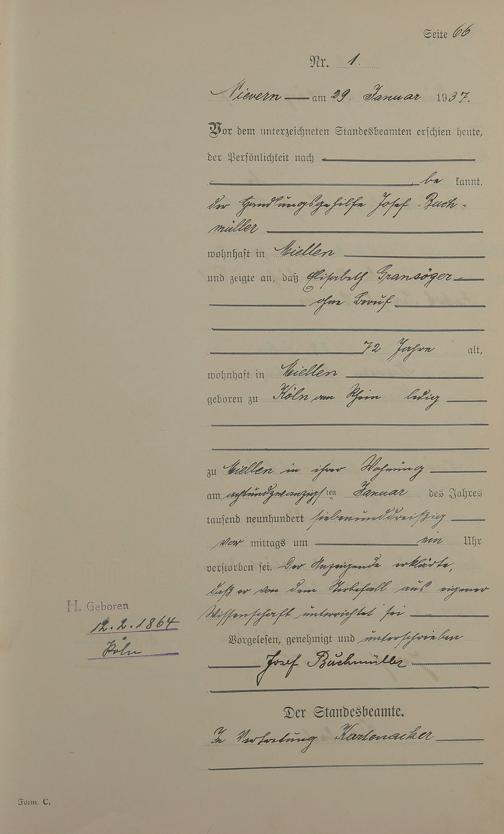 Seite 66
Nr. 1.
Nievern am 29. Januar 1937.
Vor dem unterzeichneten Standesbeamten erschien heute,
der Persönlichkeit nach
be kannt,
der Handlungsgehilfe Josef Buch-
müller
wohnhaft in Miellen
und zeigte an, daß Elisabeth Gransöger
ohne Beruf
72 Jahre alt,
wohnhaft in Miellen
geboren zu Köln am Rhein ledig
zu Miellen in ihrer Wohnung
am achtundzwanzigsten Januar des Jahres
tausend neunhundert siebenunddreißig
vor mittags um ein Uhr
verstorben sei. Der Anzeigende erklärte,
daß er von dem Sterbefall aus eigener
Wissenschaft unterrichtet sei
Vorgelesen, genehmigt und unterschrieben
Josef Buchmüller
Der Standesbeamte.
In Vertretung
H. Geboren
12.2.1864
Köln
Form. C.